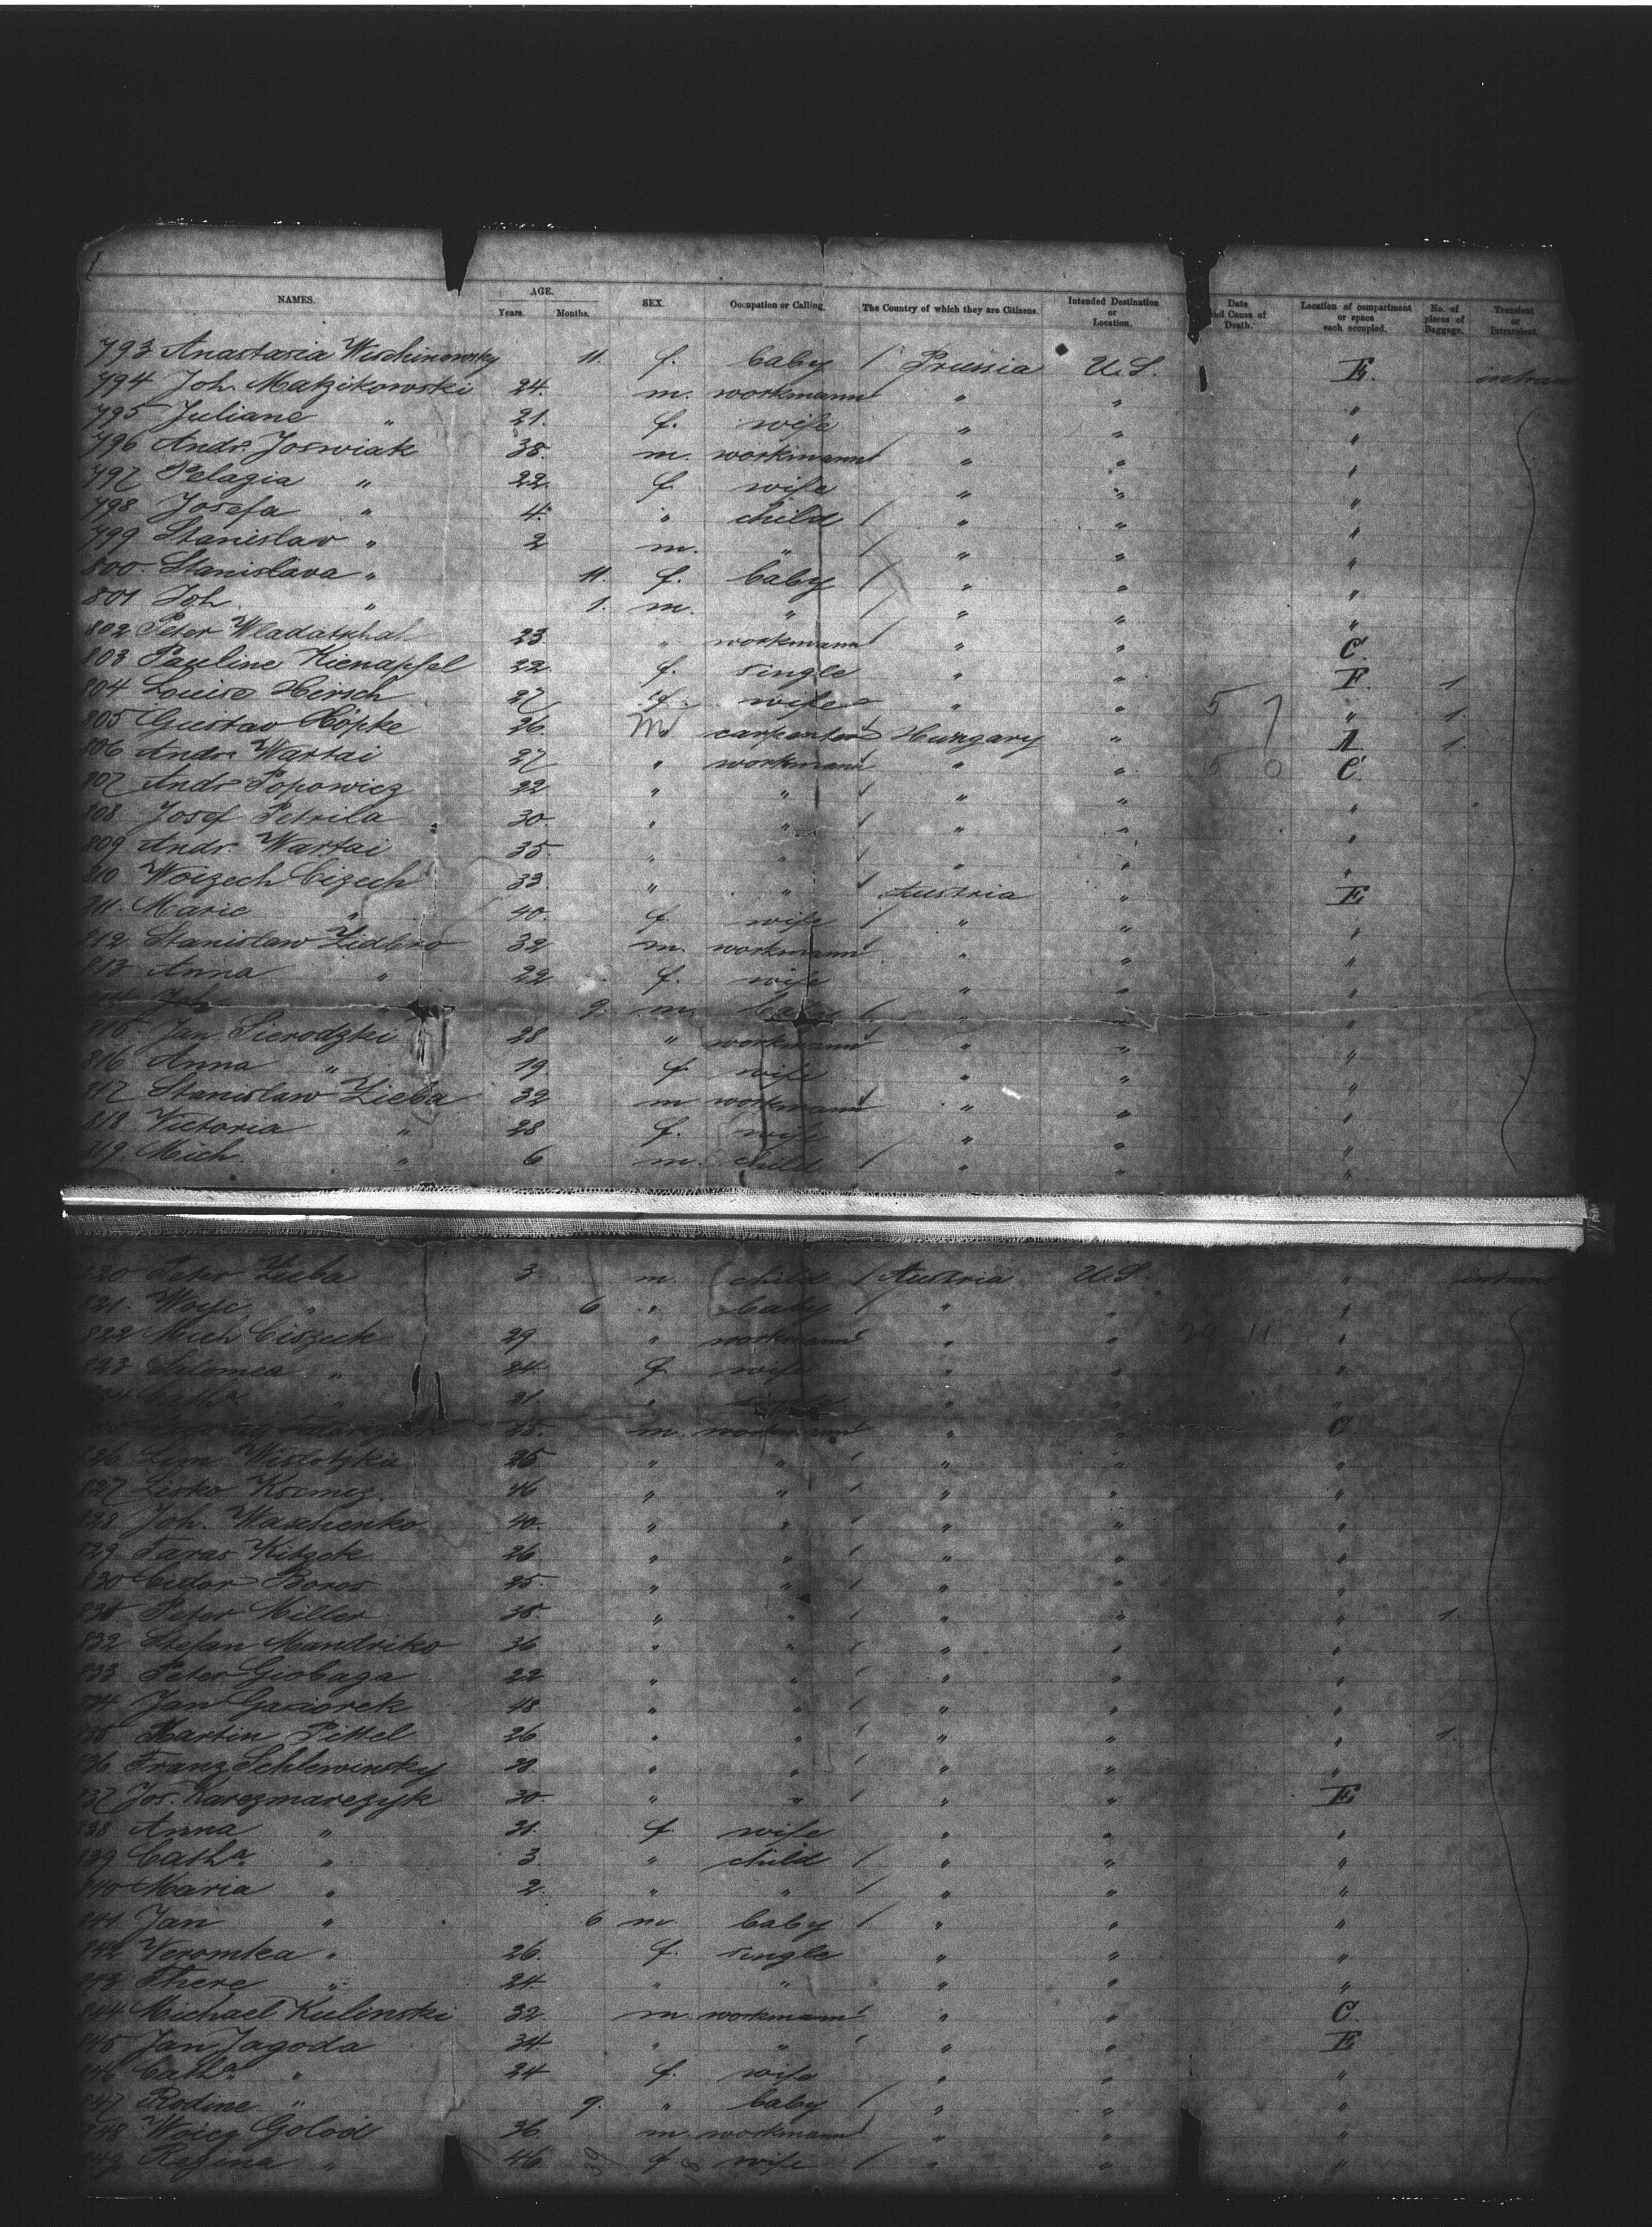 NAMES. AGE. Years. Months. SEX. Occupation or Calling. The Country of which they are Citizens. Intended Destination or Location. Date and Cause of Death. Location of compartment or space each occupied. No. of pieces of Baggage. Transient or Intransient.
793 Anastasia Wischinowsky 11. f. baby / Prussia U.S. E. intran
794 Joh. Matzikowski 24. m. workmann " " "
795 Juliane " 21. f. wife " " "
796 Andr. Joswiak 38. m. workmann " " "
797 Pelagia " 22. f. wife " " "
798 Josefa " 4. " child / " " "
799 Stanislav " 2 m. " / " " "
800. Stanislava " 11. f. baby / " " "
801 Joh. " 1. m. " / " " "
802 Peter 23. " workmann " " C.
803 Pauline Kienapfel 22. f. single " " E. 1
804 Louise Hirsch 27 f. wife " " " 1.
805 Gustav Höpke 26. M. carpenter Hungary " A. 1.
806 Andr. Wartai 27 " workmann " " C.
807 Andr Popowicz 22 " " / " " "
808 Josef Petrila 30. " " / " " "
809 Andr. Wartai 35. " " / " " "
810 Woizech Cizech 33. " " / Austria " E
811. Marie " 40. f. wife / " " "
812 Stanislaw Zidbro 32 m. workmann " " "
813 Anna " 22 f. wife " " "
Joh " 9. m. baby / " " "
815 Jan Sierodzki 28 " workmann " " "
816 Anna " 19. f wife " " "
817 Stanislaw Zieba 32 m workmann " " "
818 Victoria " 28 f. wife " " "
819. Mich. " 6 m. child / " " "
820 Peter Zieba 3. m. child / Austria U.S. " intran
821. Woyc " 6 " baby / " " "
822 Mich Ciszek 29 " workmann " " "
823 Salomea " 24. f. wife " " "
Cath^a " 21. " single " " "
25. m. workmann " " C.
826 Lim Wistotzkii 25 " " / " " "
827 Lisko 46 " " / " " "
828 Joh. Waschenko 40. " " / " " "
829 Taras Kitzek 26 " " / " " "
830 Cidor Boros 25. " " / " " "
831 Peter Miller 38. " " / " " " 1.
832 Stefan Mandriko 36 " " / " " "
833 Peter Giobaga 22 " " / " " "
834 Jan Gasiorek 48 " " / " " "
835 Martin Pittel 26 " " / " " " 1.
836 Franz Schlewinsky 38. " " / " " "
837 Jos. Karczmarczyk 30. " " / " " E
838 Anna " 31. f. wife " " "
839 Cath^a " 3. " child / " " "
840 Maria " 2. " " / " " "
841 Jan " 6 m baby / " " "
842 Veromka " 26. f. single " " "
843 There " 24. " " " " "
844 Michael Kulinski 32 m workmann " " C.
845 Jan Jagoda 34 " " / " " E
846 Cath^a " 24 f. wife " " "
847 Rodine " 9. " baby / " " "
848 Woicz Golod 36. m. workmann " " "
849 Regina " 46 f. wife / " " "